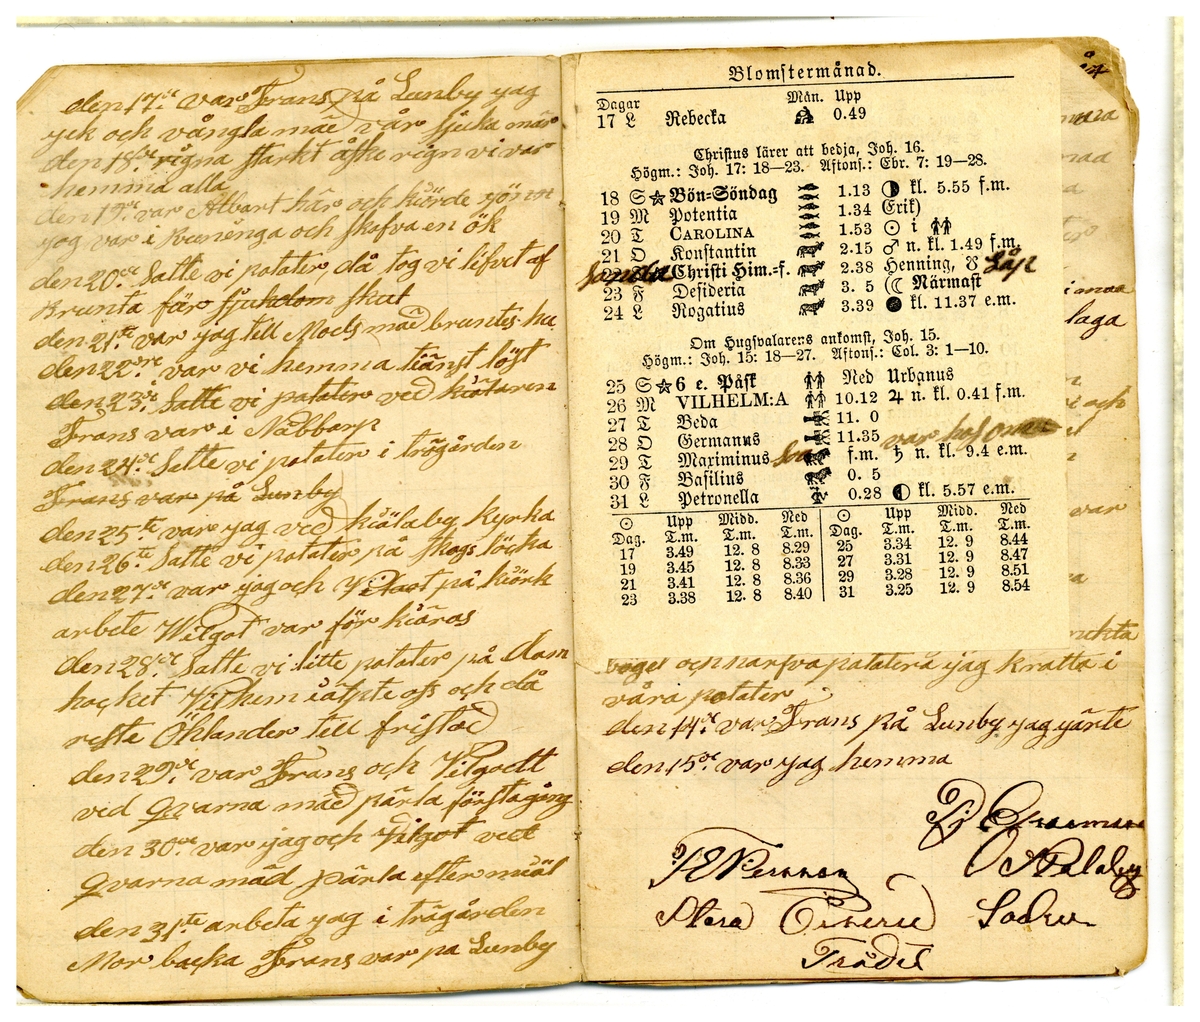 den 17de var Frans på Lunby jag
jck och vångla mäd vår sjecka mär
den 18de rigna starkt åske rign vi var
hemma alla
den 19de var Albart här och kiörde
jag var i och skafva en ök
den 20de Satte vi potater, då tog vi lifvet af
Brunta fär sjukdom skul
den 21te var jag tell Moels mäd bruntes hu
den 22dre var vi hemma tiänst löst
den 23de Satte vi potater ved kiätaren
Frans var i Näbbarp
den 24de Satte vi potater i trägården
Frans var på Lunby
den 25te var jag ved kiälaby kyrka
den 26te Satte vi potater på skogs löcka
den 27de var jag och Vilgot på kiörk
arbete Wilgot var för kiäras
den 28de Satte vi litte potater på dam
hocket Vilhem iälpte oss och då
reste Öhlander tell fristad
den 29de var Frans och Vilgodt
ved qvarna mäd pärla förstagång
den 30de var jag och Vilgot ved
qvarna mäd pärla efter miöl
den 31te arbeta jag i trägården
Mor backa Frans var pa Lunby
Blomstermånad.
Dagar Mån. Upp
17 L Rebecka 0.49
Christus lärer att bedja, Joh. 16.
Högm.: Joh. 17: 18—23. Aftons.: Ebr. 7: 19—28.
18 S Bön=Söndag 1.13 kl. 5.55 f.m.
19 M Potentia 1.34 Erik)
20 T CAROLINA 1.53 ☉ i
21 O Konstantin 2.15 ♂ n. kl. 1.49 f.m.
Christi Him.=f. 2.38 Henning, ☋
23 F Desideria 3. 5 Närmast
24 L Rogatius 3.39 kl. 11.37 e.m.
Om Hugsvalarens ankomst, Joh. 15.
Högm.: Joh. 15: 18—27. Aftons.: Col. 3: 1—10.
25 S 6 e. Påsk Ned Urbanus
26 M VILHELM:A 10.12 ♃ n. kl. 0.41 f.m.
27 T Beda 11. 0
28 O Germanus 11.35 var hos
29 T Maximinus f.m. ♄ n. kl. 9.4 e.m.
30 F Basilius 0. 5
31 L Petronella 0.28 kl. 5.57 e.m.
☉ Upp Midd. Ned ☉ Upp Midd. Ned
Dag. T.m. T.m. T.m. Dag. T.m. T.m. T.m.
17 3.49 12. 8 8.29 25 3.34 12. 9 8.44
19 3.45 12. 8 8.33 27 3.31 12. 9 8.47
21 3.41 12. 8 8.36 29 3.28 12. 9 8.51
23 3.38 12. 8 8.40 31 3.25 12. 9 8.54
laga
och
var
och harfva potatera jag kratta i
våra potater
den 14de var Frans på Lunby jag gärte
den 15de var jag hemma
Stora